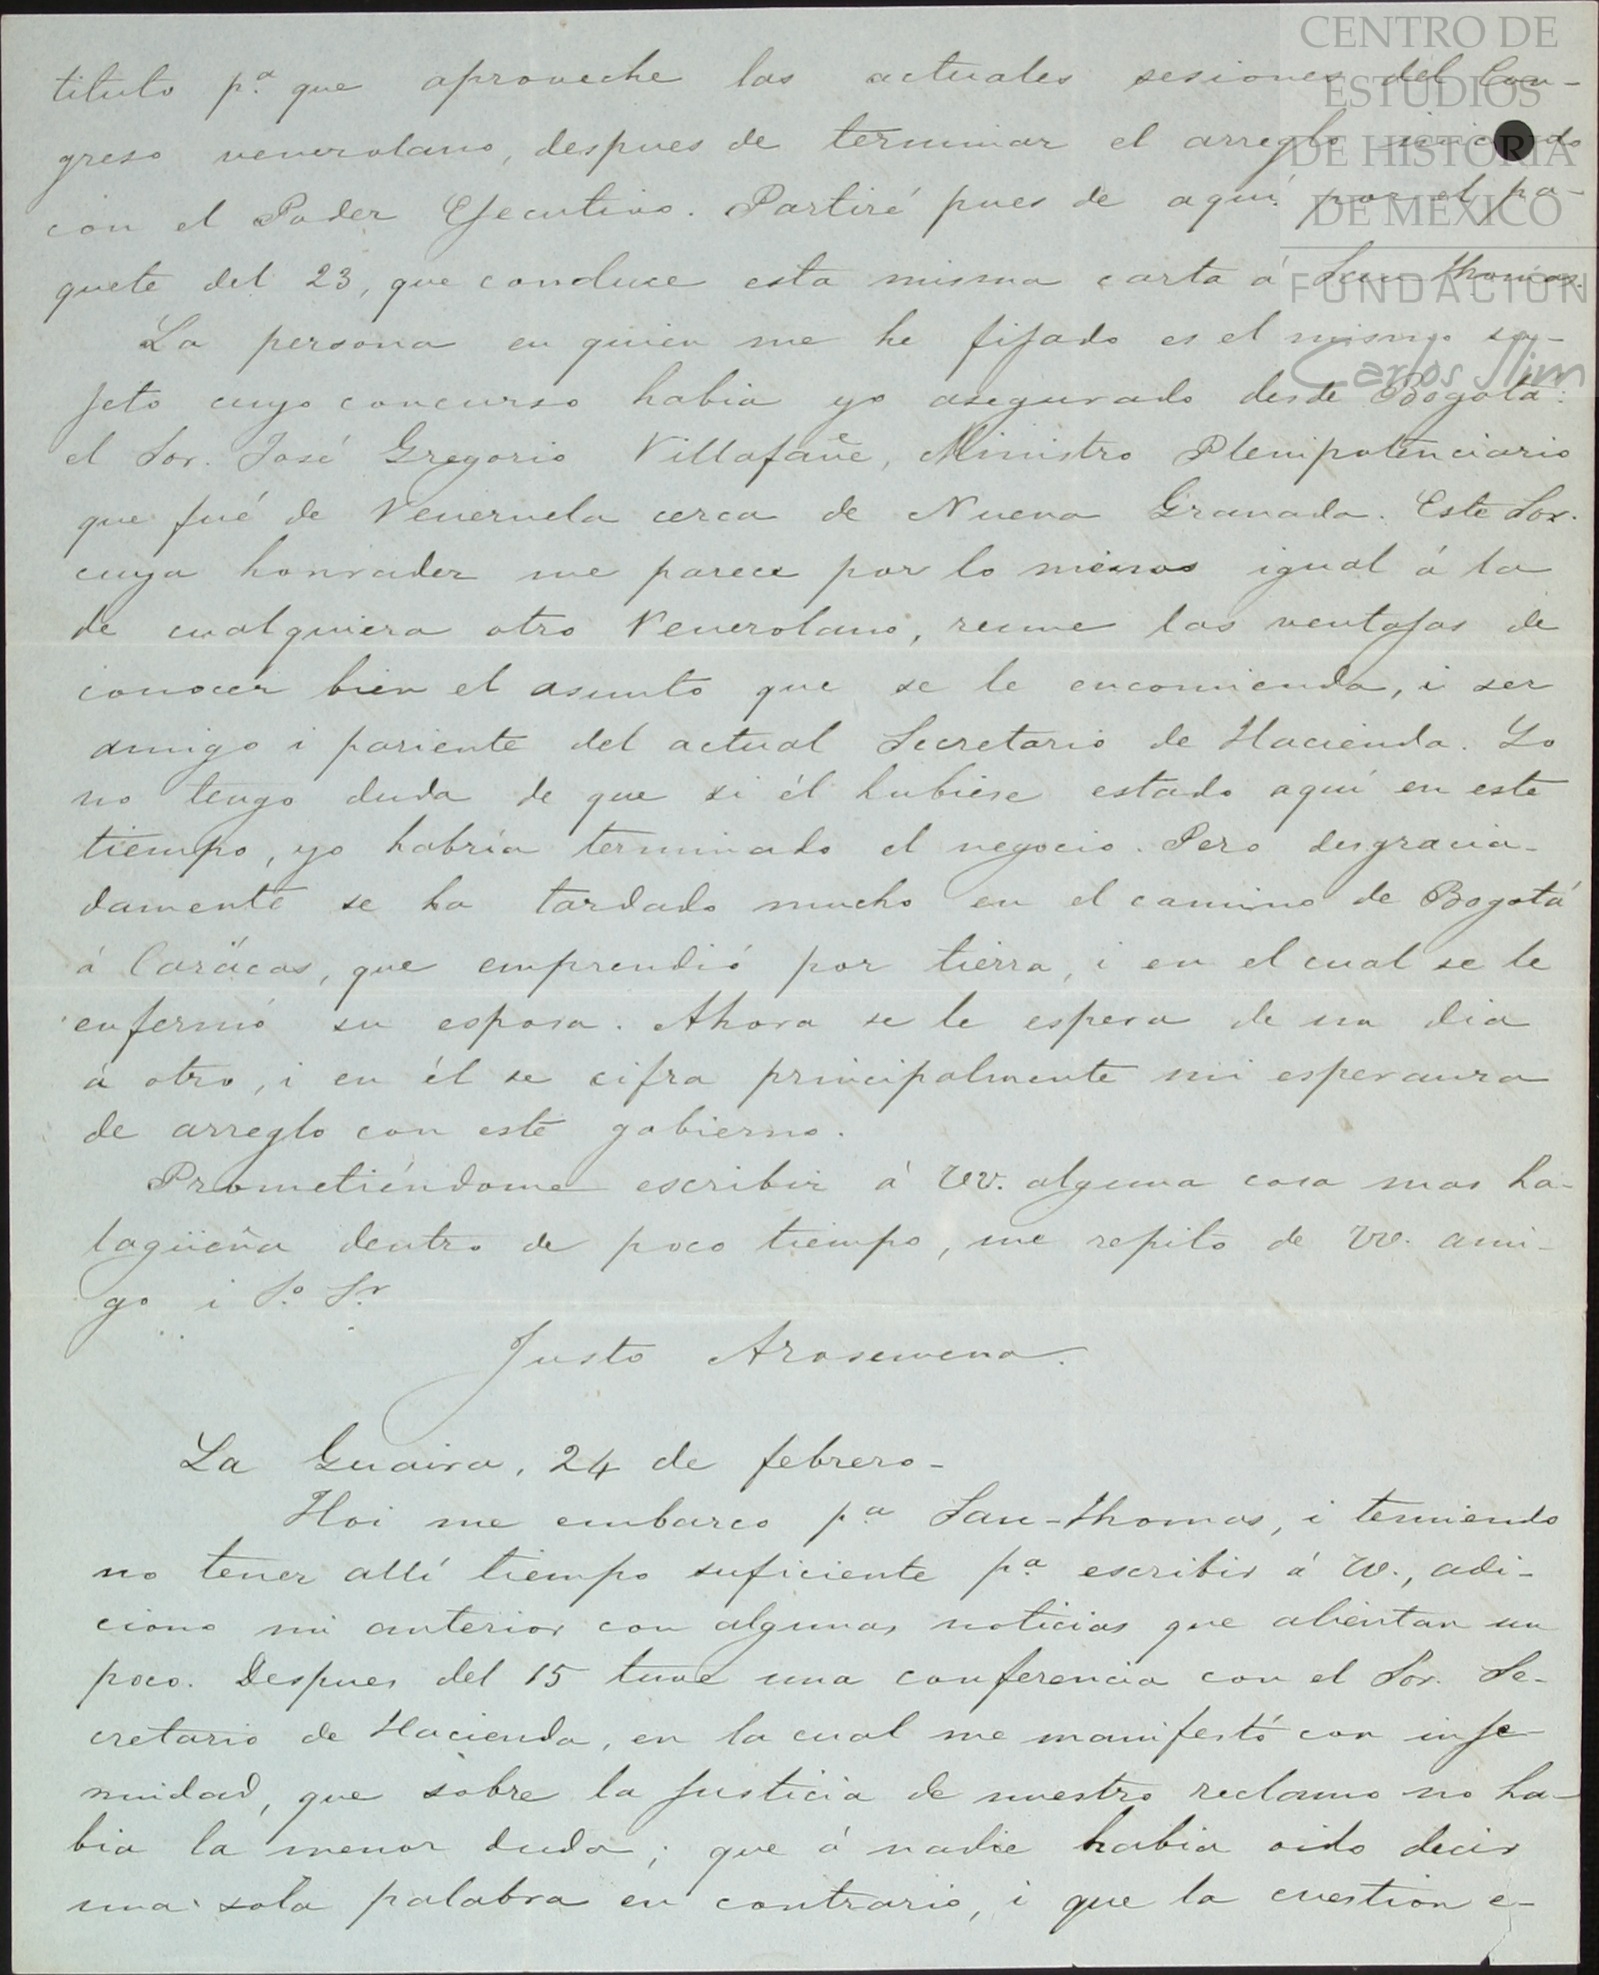 tituto p.ª que aproveche las actuales sesiones del Con-
greso venezolano, despues de terminar el arreglo iniciado
con el Poder Ejecutivo. Partiré pues de aquí por el pa-
quete del 23, que conduce esta misma carta á San Thomas.
La persona en quien me he fijado es el mismo su-
jeto cuyo concurso habia yo asegurado desde Bogotá:
el Sor. José Gregorio Villafañe, Ministro Plenipotenciario
que fué de Venezuela cerca de Nueva Granada. Este Sor.
cuya honradez me parece por lo menos igual á la
de cualquiera otro Venezolano, reune las ventajas de
conocer bien el asunto que se le encomienda, i ser
amigo i pariente del actual Secretario de Hacienda. Yo
no tengo duda de que si él hubiese estado aquí en este
tiempo, yo habría terminado el negocio. Pero desgracia-
damente se ha tardado mucho en el camino de Bogotá
á Carácas, que emprendió por tierra, i en el cual se le
enfermó su esposa. Ahora se le espera de un dia
á otro, i en él se cifra principalmente mi esperanza
de arreglo con este gobierno.
Prometiéndome escribir á VV. alguna cosa mas ha-
lagüeña dentro de poco tiempo, me repito de VV. ami-
go i S.º S.r
Justo Arosemena.
La Guaira, 24 de febrero-
Hoi me embarco p.ª San-Thomas, i temiendo
no tener allí tiempo suficiente p.ª escribir á VV., adi-
ciono mi anterior con algunas noticias que alientan un
poco. Despues del 15 tuve una conferencia con el Sor. Se-
cretario de Hacienda, en la cual me manifestó con inje-
nuidad, que sobre la justicia de nuestro reclamo no ha-
bia la menor duda; que á nadie habia oido decir
una sola palabra en contrario, i que la cuestion e-
CENTRO DE
ESTUDIOS
DE HISTORIA
DE MÉXICO
FUNDACIÓN
Carlos Slim